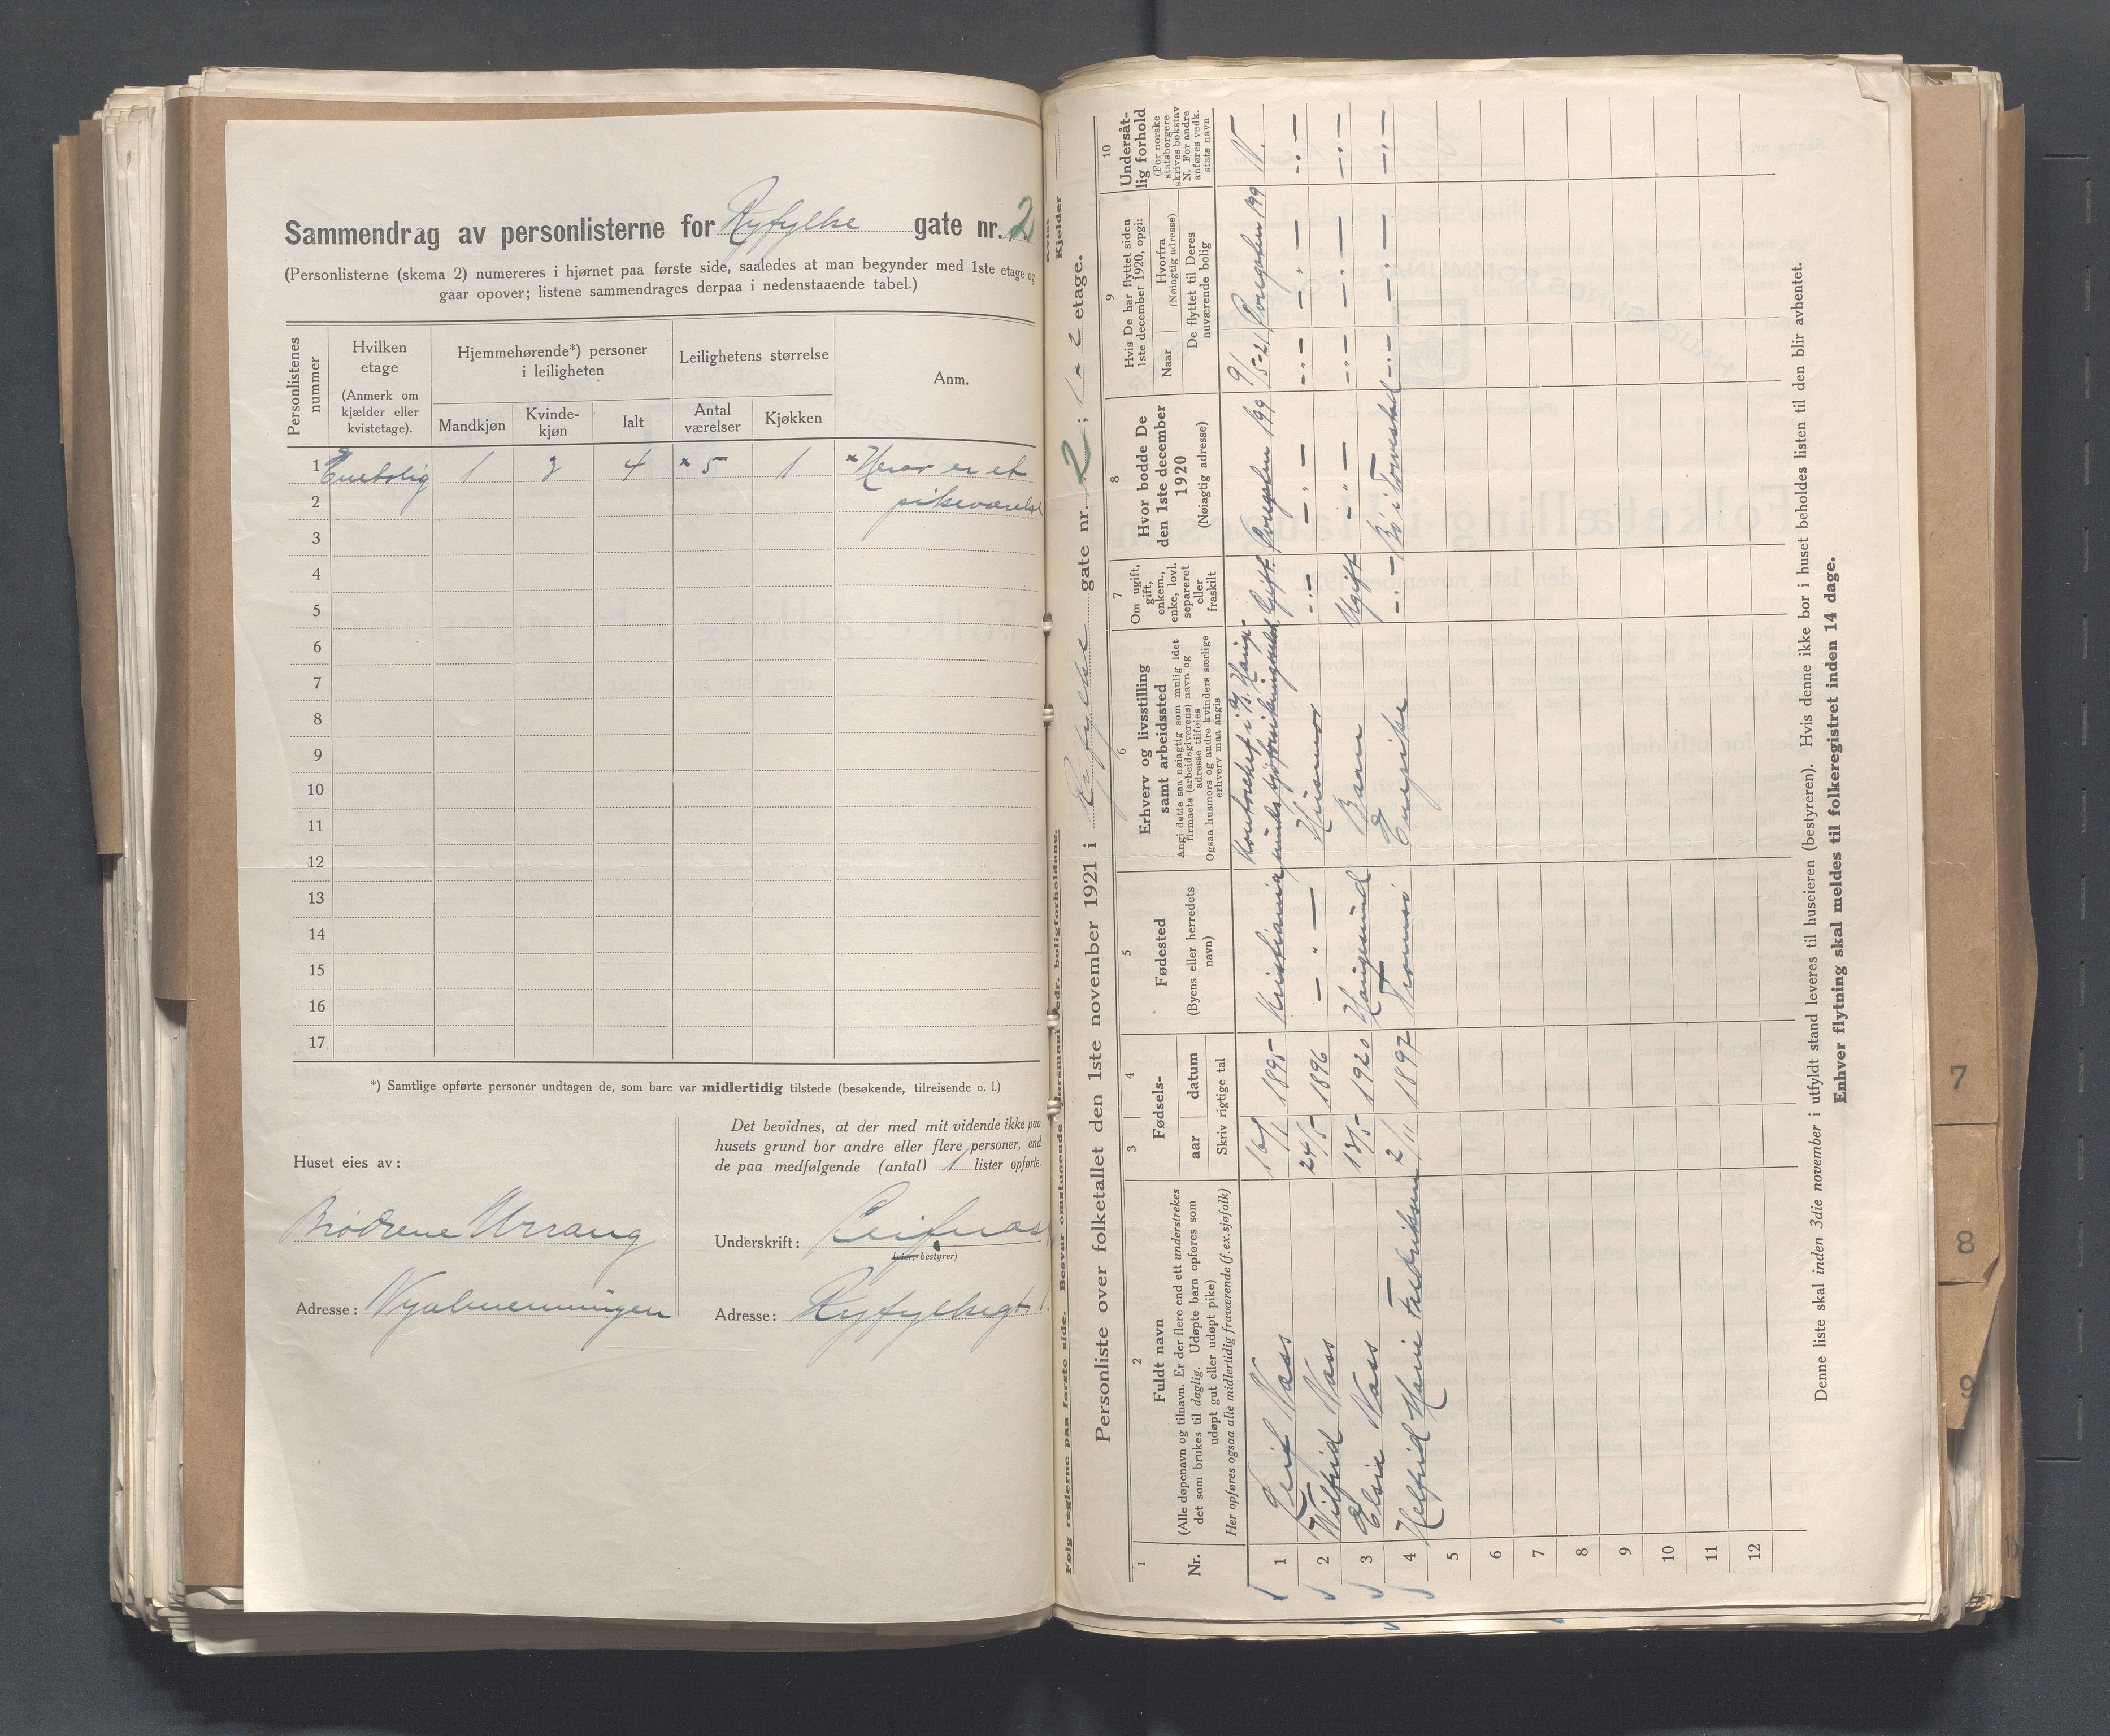 Sammendrag av personlisterne for Ryfylke gate nr. 2
(Personlisterne (skema 2) numereres i hjørnet paa første side, saaledes at man begynder med 1ste etage og
gaar opover; listene sammendrages derpaa i nedenstaaende tabel.)
Personlistenes nummer
Hvilken etage
(Anmerk om kjælder eller kvistetage).
Hjemmehørende*) personer i leiligheten
Mandkjøn
Kvindekjøn
Ialt
Leilighetens størrelse
Antal værelser
Kjøkken
Anm.
1 Enebolig 1 3 4 × 5 1 × Herav er et
2 pikeværelse
3
4
5
6
7
8
9
10
11
12
13
14
15
16
17
*) Samtlige opførte personer undtagen de, som bare var midlertidig tilstede (besøkende, tilreisende o. l.)
Huset eies av:
Brødrene Urrang
Adresse:
Det bevidnes, at der med mit vidende ikke paa
husets grund bor andre eller flere personer, end
de paa medfølgende (antal) 1 lister opførte.
Underskrift: Leif Næss
(eier, bestyrer)
Adresse: Ryfylkegt.
Følg reglerne paa første side. Besvar omstaaende spørsmaal vedr. boligforholdene.
Kvist
Kjelder
Personliste over folketallet den 1ste november 1921 i Ryfylke gate nr. 2; 1 - 2 etage.
1
Nr.
2
Fuldt navn
(Alle døpenavn og tilnavn. Er der flere end ett understrekes
det som brukes til daglig. Udøpte barn opføres som
udøpt gut eller udøpt pike)
Her opføres ogsaa alle midlertidig fraværende (f.ex.sjøfolk)
3 4
Fødsels-
aar datum
Skriv rigtige tal
5
Fødested
(Byens eller herredets
navn)
6
Erhverv og livsstilling
samt arbeidssted
Angi dette saa nøiagtig som mulig idet
firmaets (arbeidsgiverens) navn og
adresse tilføies
Ogsaa husmors og andre kvinders særlige
erhverv maa angis
7
Om ugift,
gift,
enkem.,
enke, lovl.
separeret
eller
fraskilt
8
Hvor bodde De
den 1ste december
1920
(Nøiagtig adresse)
9
Hvis De har flyttet siden
1ste december 1920, opgi:
Naar
Hvorfra
(Nøiagtig adresse)
De flyttet til Deres
nuværende bolig
10
Undersåt-
lig forhold
(For norske
statsborgere
skrives bokstav
N. For andre
anføres vedk.
stats navn
1 Leif Næss 16/1 1895 Kristiania Kontorchef i Gift 199 9/5-21 199 N.
2 Wilfrid Næss 24/5- 1896 — " — Husmor -"- — " — -"- — " — -"-
3 Elsie Næss 1920 Haugesund Barn Ugift — " — -"- — " — -"-
4 Helfrid Marie Fredriksen 2/11 1897 Tromsø Enepike -"- -"- — " — -"-
5
6
7
8
9
10
11
12
Denne liste skal inden 3die november i utfyldt stand leveres til huseieren (bestyreren). Hvis denne ikke bor i huset beholdes listen til den blir avhentet.
Enhver flytning skal meldes til folkeregistret inden 14 dage.
7
8
9
10